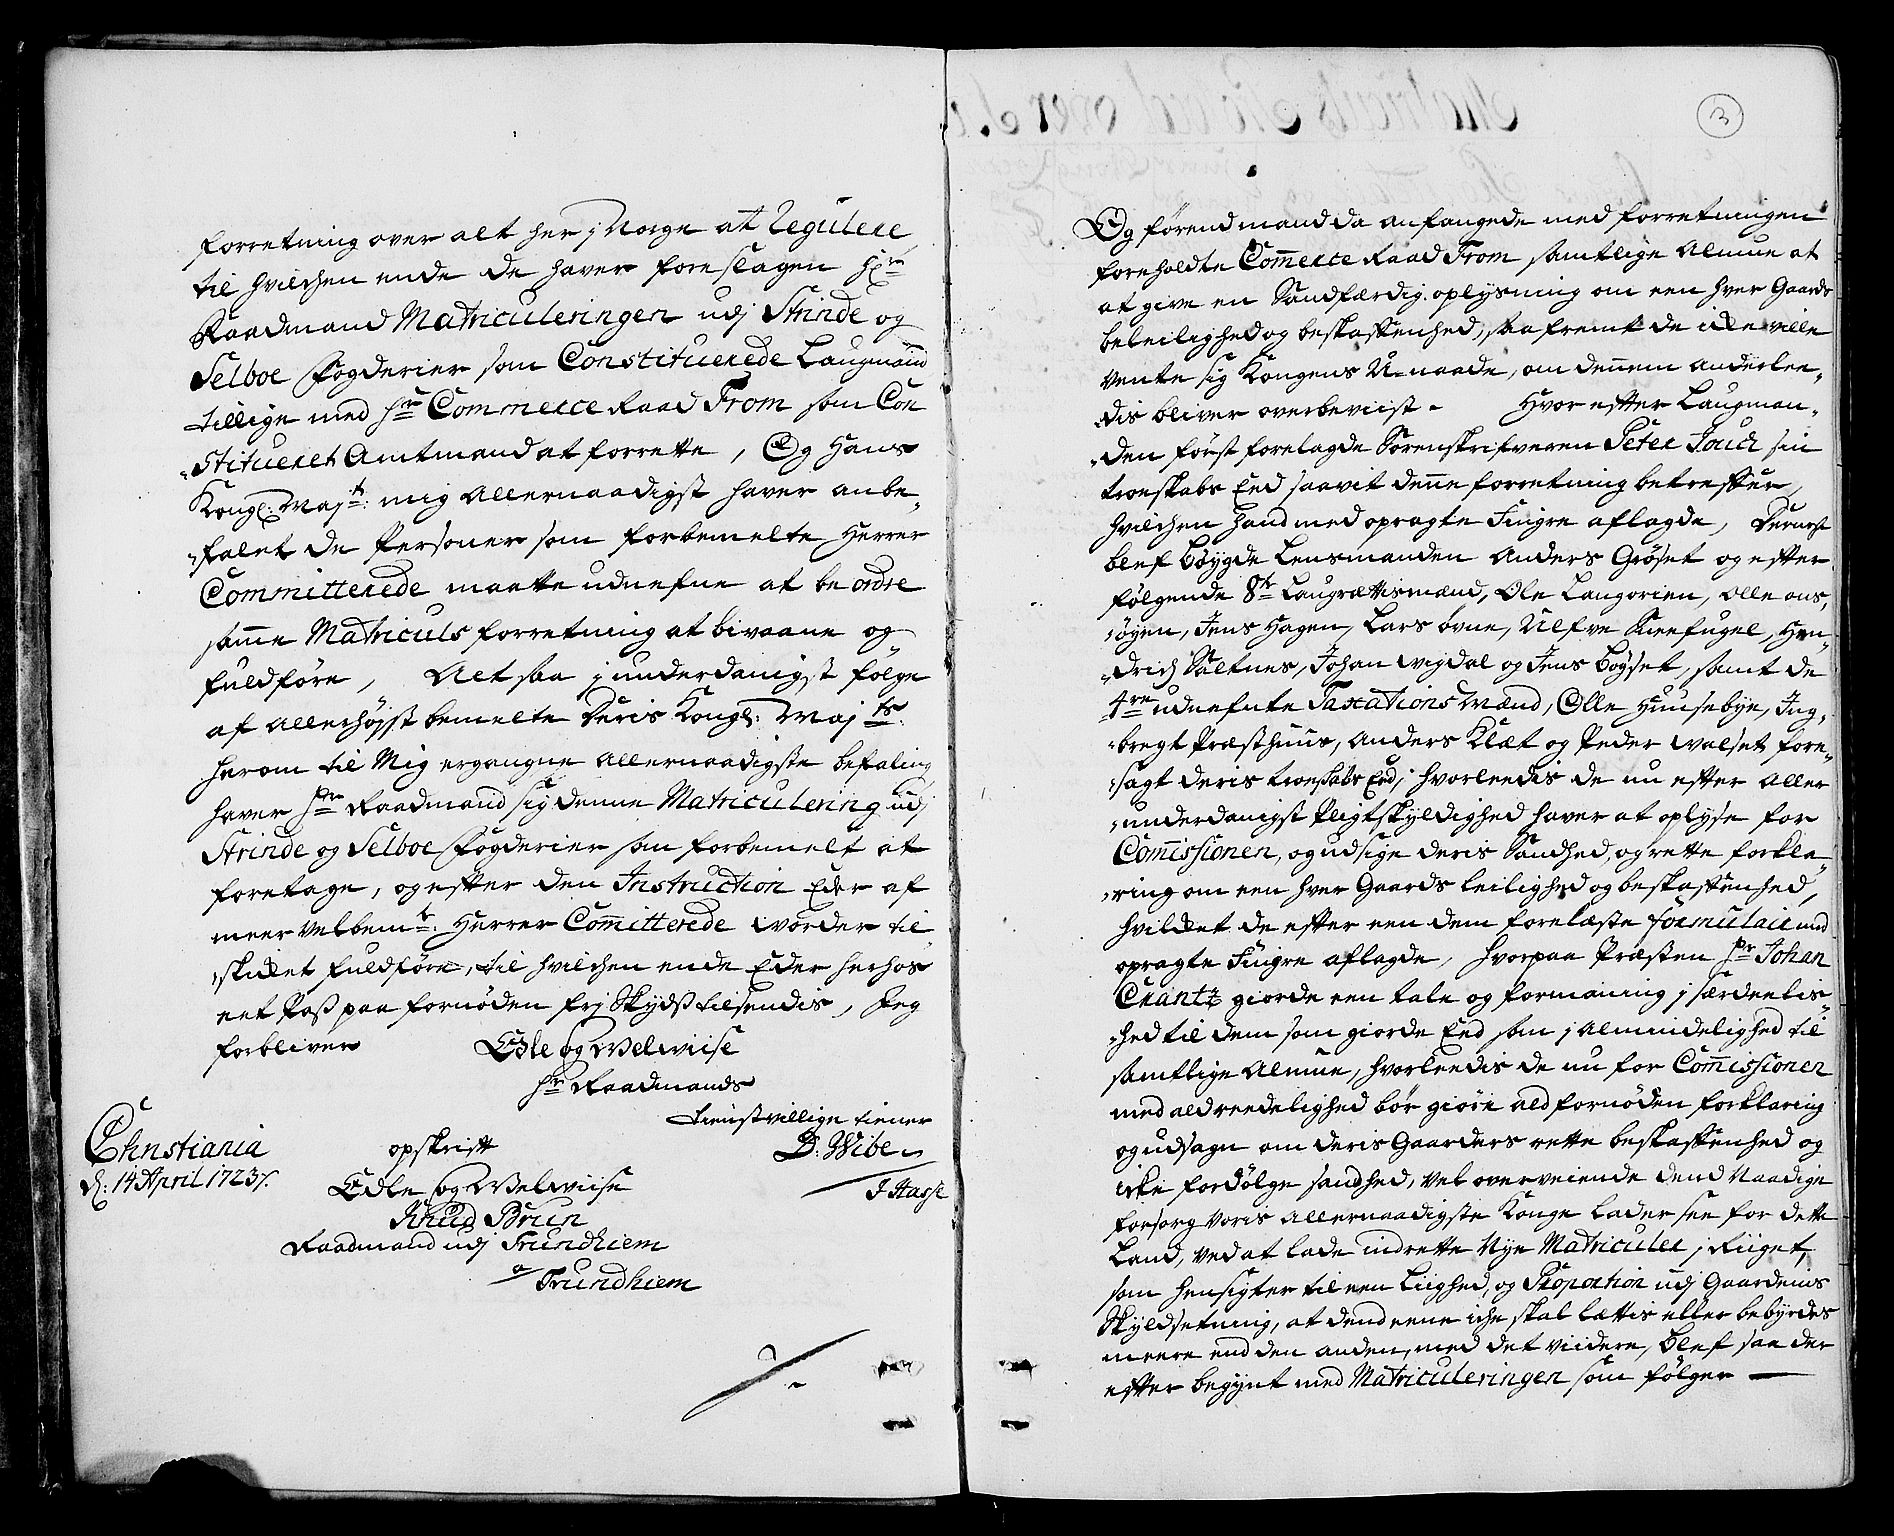 forretning over alt her j Norge at Regulere
til hvilchen ende de haver foreslagen hr
Raadmand Matriculeringen udj Strinde og
Selboe fogderier som Constituerede Laugmand
tillige med hr Commerce Raad From som Con
stitueret Amtmand at forrette, Og Hans
Kongl: Mayt: mig Allernaadigst haver anbe-
falet de Personer som forbemelte Herrer
Committerede maatte udnefne at beordre
samme Matriculs forretning at bivaane og
fuldføre, Alt saa j underdanigst følge
af Allerhøyst bemelte Deris Kongl: Mayts:
herom til Mig ergangne Allernaadigste befaling
haver hr Raadmand sig denne Matriculering udj
Strinde og Selboe fogderier som forbemelt at
foretage, og efter den Instruction Eder af
meer velbemt: Herrer Comitterede vorder til-
skicket fuldføre, til hvilchen ende Eder herhos
eet Pass paa fornøden frj Skyds tilsendis, Jeg
forbliver
Edle og Welwiise
hr Raadmands
tienstvillige tiener
D: Wibe
Christiania
d: 14 April 1723
opskrift
J Hasse
Edle og Welwiise
Knud Brun
Raadmand udj Trundhiem
a Trundhiem
3
Og førend mand da anfangede med forretningen
foreholdte Commerce Raad From samtlige Almue at
at give en Sandfærdig oplysning om een hver Gaards
beleilighed og beskaffenhed, saa fremt de icke ville
vente sig Kongens U-naade, om dennem anderlee-
dis bliver overbeviist - Hvor efter Laugman-
den først forelagde Sorenskrifveren Peter Juul sin
troeskabs Eed saavit denne forretning betreffer,
hvilchen hand med opragte Fingre aflagde, Dernest
blef bøygde Lensmanden Anders Grøset og efter
følgende 8te Laugrættismænd, Ole Langorien, Olle ons-
øyen, Jens Hagen, Lars øvne, Ulfve Kneefugel, Hen-
drich Saltnes, Johan wigdal og Jens Bøyset, samt de
4re udnefnte Taxations Mænd, Olle Huusebye, Ing-
bregt Præsthuus, Anders Klæt og Peder Walset fore-
sagt deris troeskabs Eed, hvorleedis de nu efter aller
underdanigst Pligtskyldighed haver at oplyse for
Comissionen, og udsige deris Sandhed, og rette forkla-
ring om een hver Gaards leilighed og beskaffenhed,
hvilcket de efter een dem forelæste formulair med
opragte Fingre aflagde, hvorpaa Præsten hr Johan
Crantz giorde een tale og formaning j særdeelis-
hed til dem som giorde Eed som j almindelighed til
samtlige Almue, hvorleedis de nu for Comissionen
med ald reedelighed bør giøre ald fornøden forklaring
og udsagn om deris Gaarders rette beskaffenhed og
icke fordølge sandhed, vel overveiende dend Naadige
forsorg voris allernaadigste Konge lader see for dette
Land, ved at lade indrette Nye Matriculer j Riiget,
som hensigter til een Liighed, og Proportion udj Gaardenis
Skyldsetning, at dend eene iche skal lættis eller bebyrdes
meere end den anden, med det viidere, blef saa der
efter begynt med Matriculeringen som følger